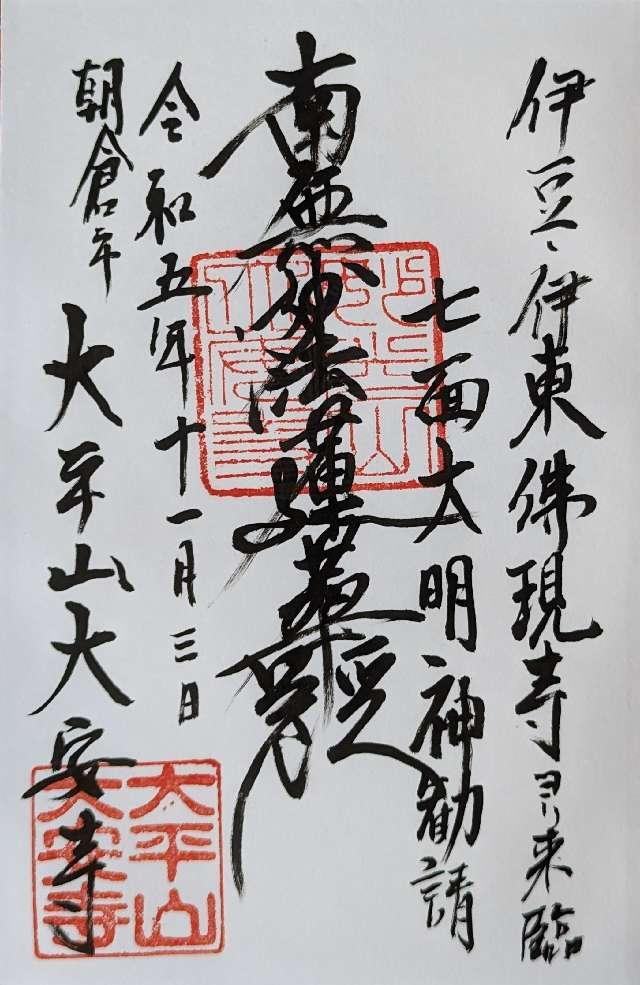 伊豆、伊東佛現寺ヨリ来臨
七面大明神勧請
南無妙法蓮華經
令和五年十一月三日
朝倉市 大平山大安寺
大平山
大安寺